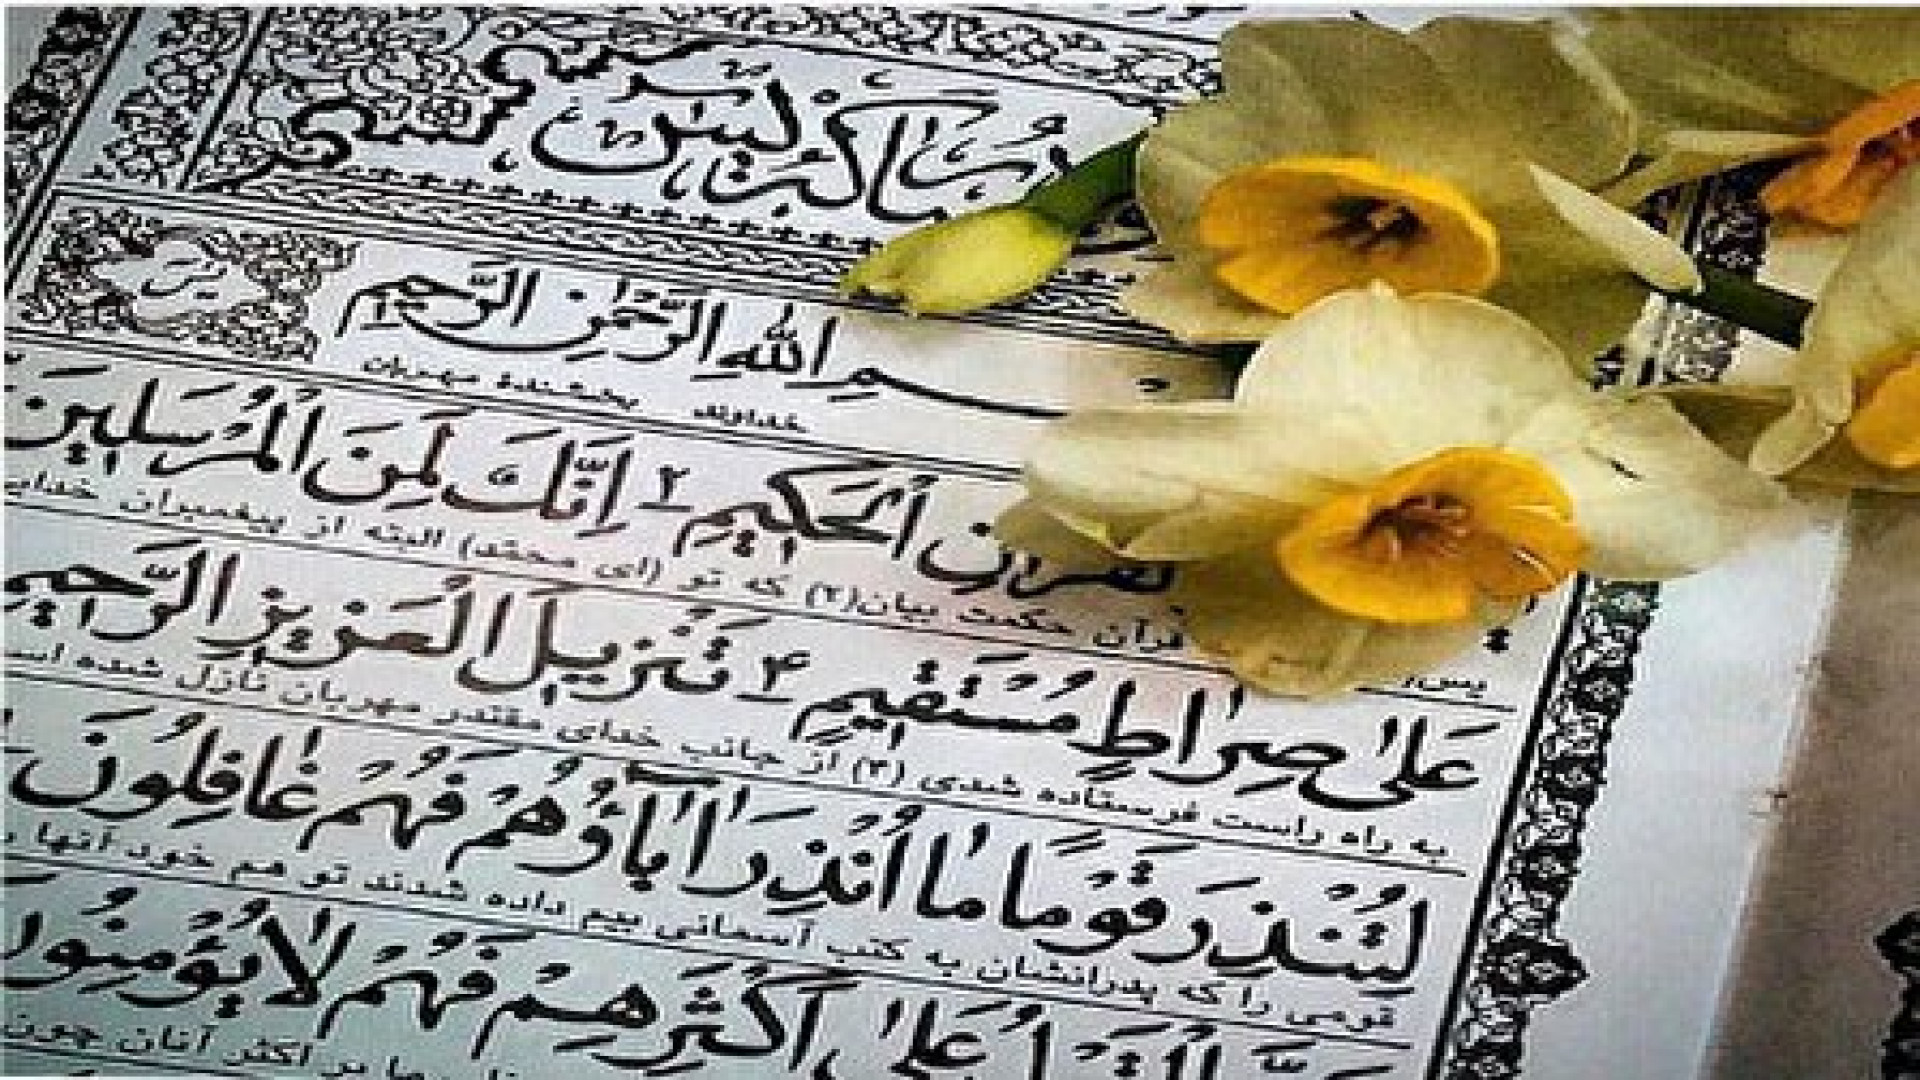 یس
بِسْمِ اللهِ الرَّحْمٰنِ الرَّحیمِ
خداوند بخشندهٔ مهربان
الْحَكیمِ ۲ اِنَّكَ لَمِنَ الْمُرْسَلینَ
قرآن حکمت بیان(۲) که تو (ای محمّد) البته از پیغمبران
عَلىٰ صِرٰاطٍ مُسْتَقیمٍ ۴ تَنْزیلَ الْعَزیزِ الرَّحیمِ
به راه راست فرستاده شدی (۴) از جانب خدای مقتدر مهربان نازل شده
لِتُنْذِرَ قَوْمًا مٰا اُنْذِرَ اٰبٰاؤُهُمْ فَهُمْ غٰافِلُونَ
قومی را که پدرانشان به کتب آسمانی بیم داده شدند تو هم خود آنها
عَلىٰ اَكْثَرِهِمْ فَهُمْ لٰا یُؤْمِنُونَ
بر اکثر آنان چون